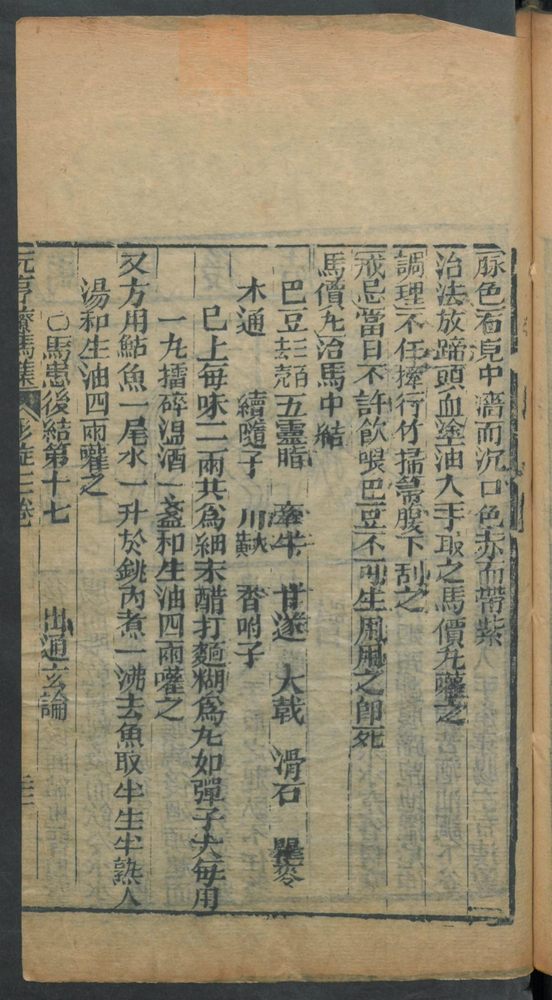 脉色右鳬中濇而沉口色赤而帶紫
治法放蹄頭血塗油入手取之馬價丸灌之
調理不住牽行竹掃箒腹下刮之
戒忌當日不許飲喂巴豆不可生用用之卽死
馬價丸治馬中結
巴豆去殼 五靈脂 牽牛 甘遂 大戟 滑石 瞿麥
木通 續隨子 香附子
已上每味二兩共為細末醋打麵糊為丸如彈子大每用
一丸擂碎温酒一盞和生油四兩灌之
又方用鮎魚一尾水一升於銚內煮一沸去魚取半生半熟人
湯和生油四兩灌之
○馬患後結第十七 出通玄論
元亨療馬集